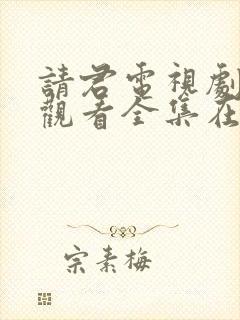 請君電視劇
觀看全集在
宗素梅